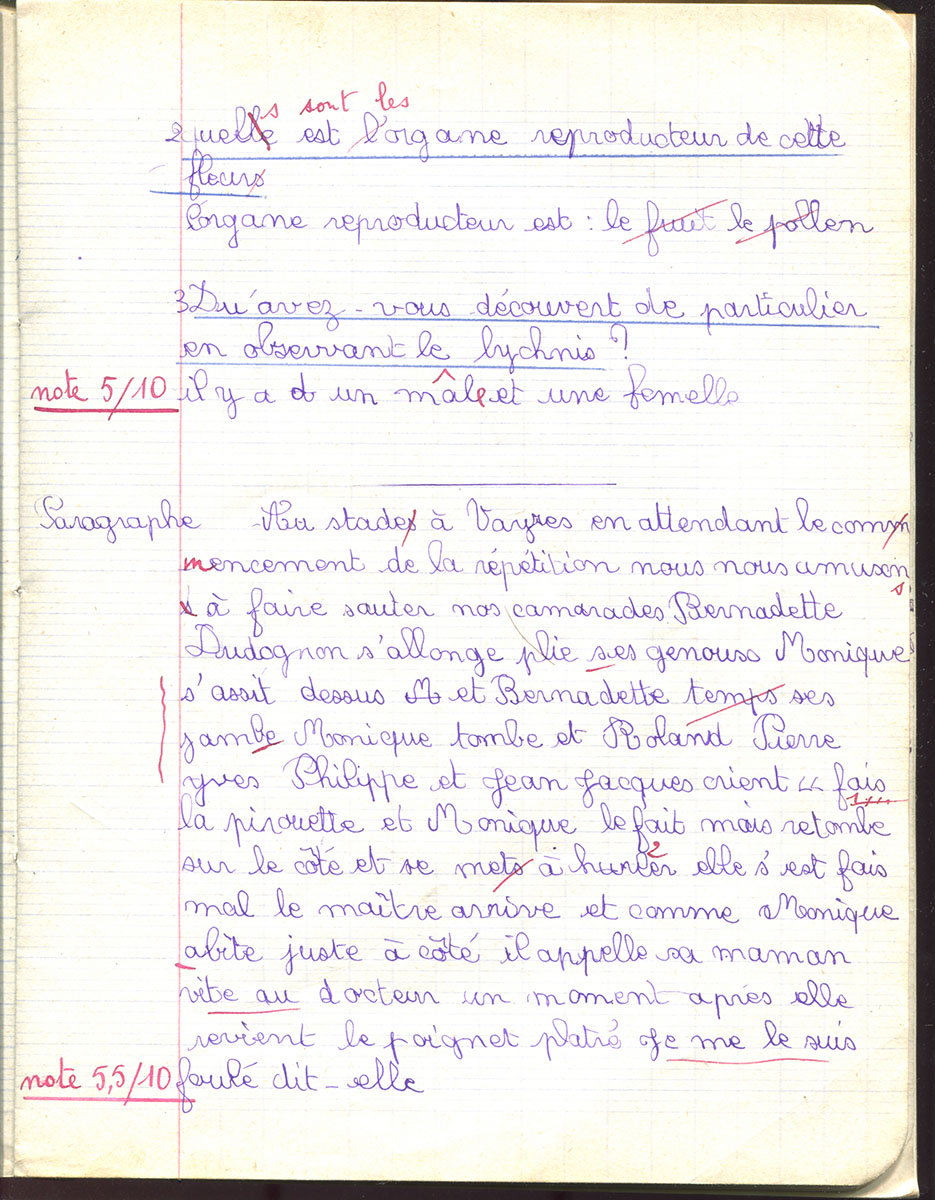 s sont les
2 quelle est l'organe reproducteur de cette
fleurs
l'organe reproducteur est : le fruit le pollen
3 Qu'avez-vous découvert de particulier
en observant le lychnis ?
note 5/10 il y a d un mâle et une femelle
Paragraphe Au stades à Vayres en attendant le comm
mencement de la répétition nous nous amuson
s
s à faire sauter nos camarades Bernadette
Dudognon s'allonge plie ses genouso Monique
s'assit dessus M et Bernadette temps ses
jambe Monique tombe et Roland Pierre
yves Philippe et Jean Jacques crient « fais
1
la pirouette et Monique le fait mais retombe
2
sur le côté et se mets à hurler elle s'est fais
mal le maître arrive et comme Monique
abite juste à côté il appelle sa maman
vite au docteur un moment après elle
revient le poignet platré Je me le suis
note 5,5/10 foulé dit-elle